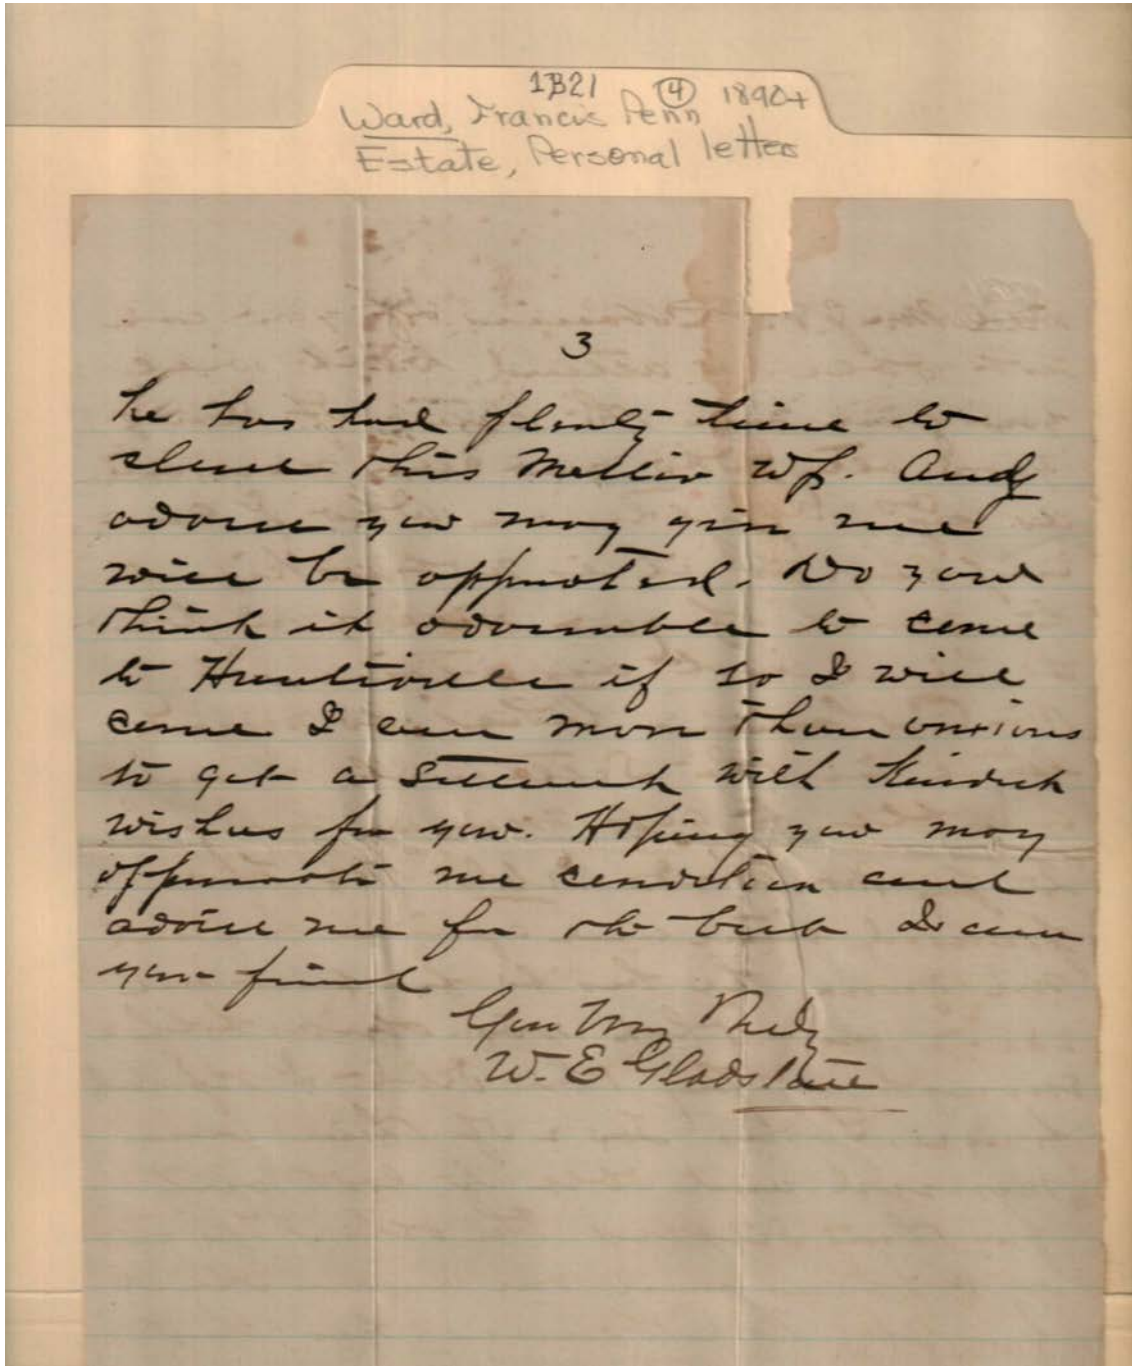 1B21 (4) 1890+
Ward, Francis Penn
Estate, Personal letter
3
he has had plenty time to
this Matter up. Any
advise you may give me
will be . Do you
think it adviseable to come
to Huntsville if so I will
come I am more than anxious
to get a with Kindest
wishes for you. Hoping you may
me condition and
advise me for the best I am
your friend
Very
W. E Gladstone